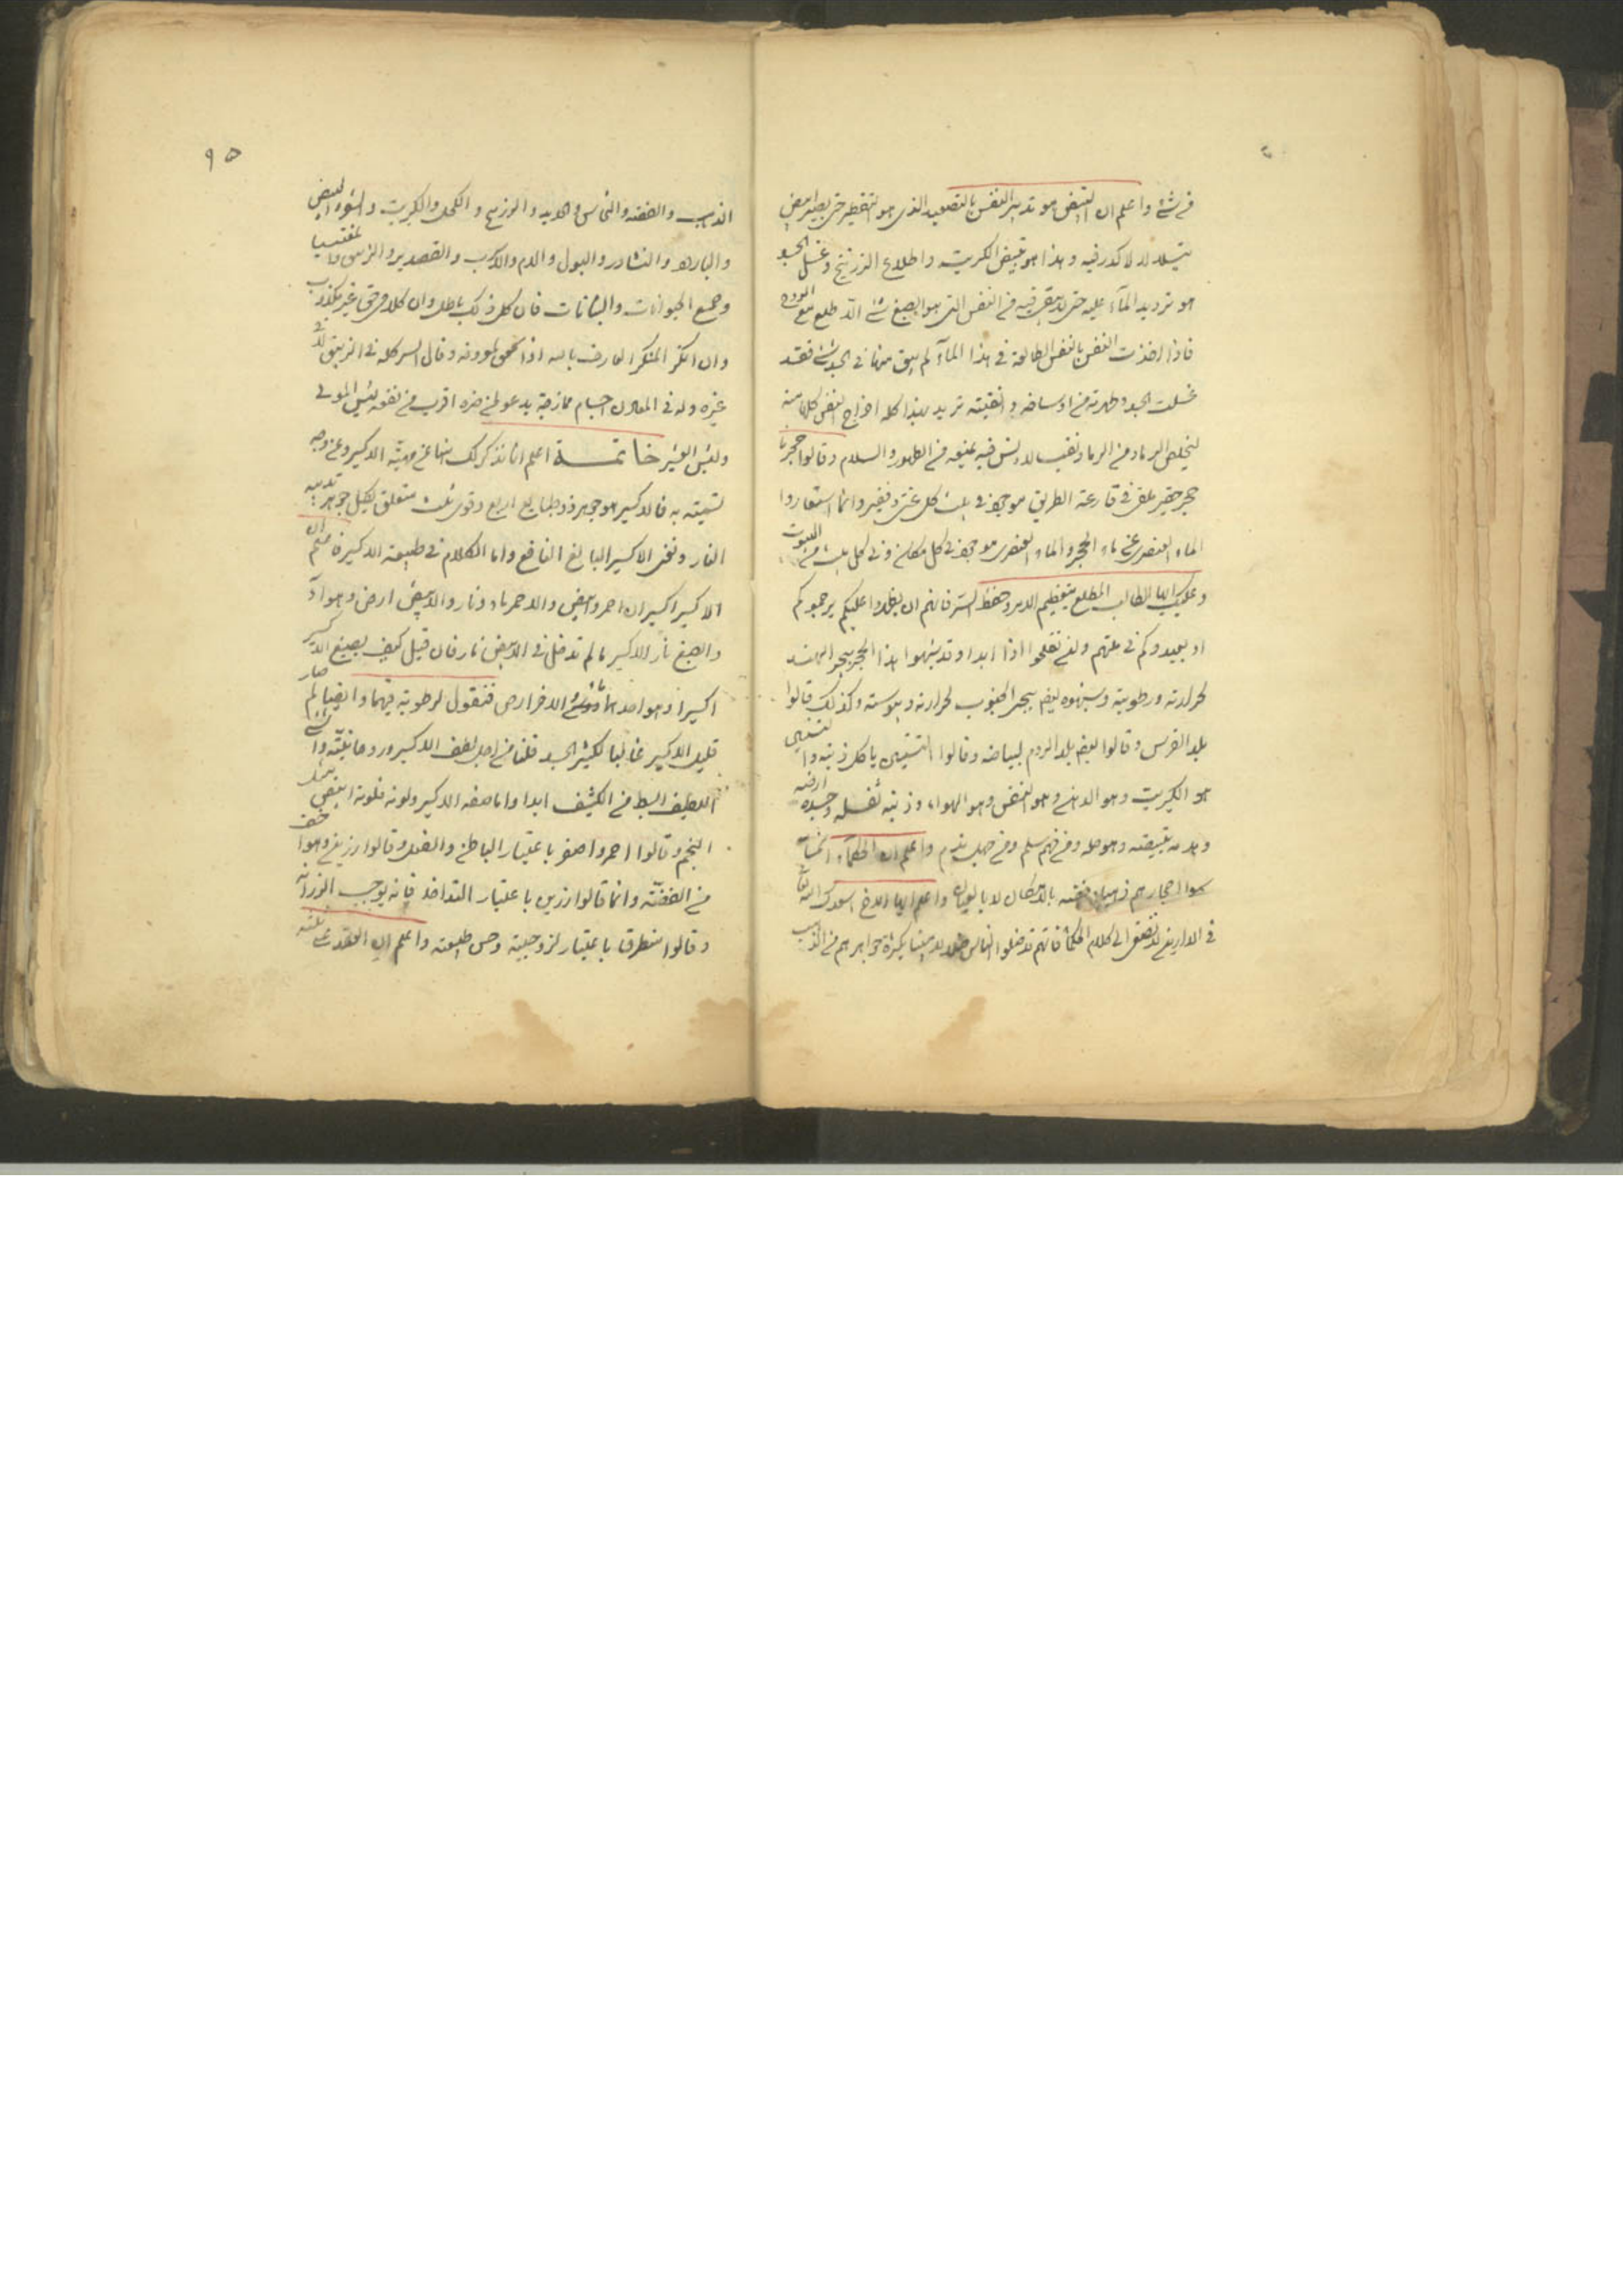 في شئ واعلم ان التبيض هو تدبير النفس بالتصعيد الذي هو التقطير حتى يصير ابيض
يتلالا لا كدر فيه وهذا هو تبيض الكبريت واطلاع الزرنيخ وغسل الجسد
هو ترديد الماء عليه حتى لا يبقى فيه من النفس التي هو الصبغ شئ الا طلع مع الروح
فاذا اخذت النفس بالنفس الطالعة في هذا الماء لم يبق منها في الجسد شئ فقد
غسلت الجسد وطهرته من اوساخه وانقيته تريد بهذا كله اخراج النفس كلها منه
ليخلص الرماد من الرماد نقيا لا دنس فيه يمنعه من الطهور والسلام وقالوا حجرنا
حجر حقير ملقى في قارعة الطريق موجود في بيت كل غني وفقير وانما استعاروا
الماء العنصرى عن ماء الحجر والماء العنصرى موجود في كل مكان وفي كل بيت من البيوت
وعليك ايها الطالب المطلع بتعظيم الامر وحفظ السر فانهم ان يظهروا عليكم يرجموكم
او يعيدوكم في ملتهم ولن تفلحوا اذا ابدا وقد شبهوا هذا الحجر بحجر الهند
لحرارته ورطوبته وشبهوه ايضا بحجر الجنوب لحرارته ويبوسته وكذلك قالوا
بلد الفرس وقالوا ايضا بلد الروم لبياضه وقالوا التنين ياكل ذنبه والتنين
هو الكبريت وهو الدهن وهو النفس وهو الهواء وذنبه ثفله وجسده وارضه
وهو حله ومن فهم سلم ومن جهل ندم واعلم ان الحكماء
واعلم ايها الاخ اسعدك الله تعالى
في الدارين لا تصغى الى كلام الحكما فانهم قد ضلوا الناس ضلالا مبينا بكثرة جواهرهم من الذهب
٩٥
الذهب والفضة والنحاس والحديد والزرنيخ والكحل والكبريت والشعر والبيض
والبارود والنشادر والبول والدم والاسرب والقصدير والزيبق والمغنيسيا
وجميع الحيوانات والنباتات فان كل ذلك باطل وان كلامي حق غير مكذوب
وان انكر المنكر العارف بالله اذا محق لمودته وقال السر كله في الزيبق لا في
غيره وله في المعادن اجسام ممازجة يدعو لمن ضره اقرب من نفعه لبئس المولى
ولبئس العشير خاتمة اعلم انا نذكر لك ايضا عن مهية الاكسير وعن وجه
تسميته به فالاكسير هو جوهر ذو طبايع اربع وقوى ثلث متعلق بكل جوهر تدبيره
النار ونحن الاكسير البالغ النافع واما الكلام في طبيعة الاكسير فاعلم ان
الاكسير اكسيران احمر وابيض والاحمر ماء ونار والابيض ارض وهواء
والصبغ نار الاكسير مالم تدخل في الابيض نار فان قيل كيف يصبغ الاكسير
اكسيرا وهو احدهما والاخر ارض فنقول لرطوبة فيهما وايضا لم صار
قليل الاكسير غالبا لكثير الجسد قلنا من اجل لطف الاكسير وروحانيته والشئ
اللطيف ابسط من الكثيف ابدا واما صفة الاكسير ولونه فلونه ابيض مثل
النجم وقالوا احمر واصفر باعتبار الباطن والفعل وقالوا رزين وهو اخف
من الفضة وانما قالوا رزين باعتبار التداخل فانه يوجب الرزانة
وقالوا منطرقا باعتبار لزوجيته وحسن طبيعته واعلم ان العقد على ثلثة